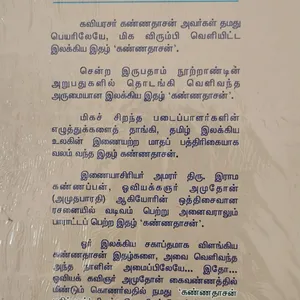 கவியரசர் கண்ணதாசன் அவர்கள் தமது
பெயரிலேயே, மிக விரும்பி வெளியிட்ட
இலக்கிய இதழ் 'கண்ணதாசன்'.
சென்ற இருபதாம் நூற்றாண்டின்
அறுபதுகளில் தொடங்கி வெளிவந்த
அருமையான இலக்கிய இதழ் 'கண்ணதாசன்'.
மிகச் சிறந்த படைப்பாளர்களின்
எழுத்துக்களைத் தாங்கி, தமிழ் இலக்கிய
உலகின் இணையற்ற மாதப் பத்திரிகையாக
வலம் வந்த இதழ் கண்ணதாசன்.
இணையாசிரியர் அமரர் திரு. இராம
கண்ணப்பன், ஓவியக்கலைஞர் அமுதோன்
(அமுதபாரதி) ஆகியோரின் ஒத்திசைவான
ரசனையில் வடிவம் பெற்று அனைவராலும்
பாராட்டப் பெற்ற இதழ் கண்ணதாசன்.
ஓர் இலக்கிய சகாப்தமாக விளங்கிய
கண்ணதாசன் இதழ்களை, அவை வெளிவந்த
அந்த நாளின் அமைப்பிலேயே... இதோ...
ஓவியக் கவிஞர் அமுதோன் கைவண்ணத்தில்
மீண்டும் கொணர்வதில் நமது 'கண்ணதாசன்